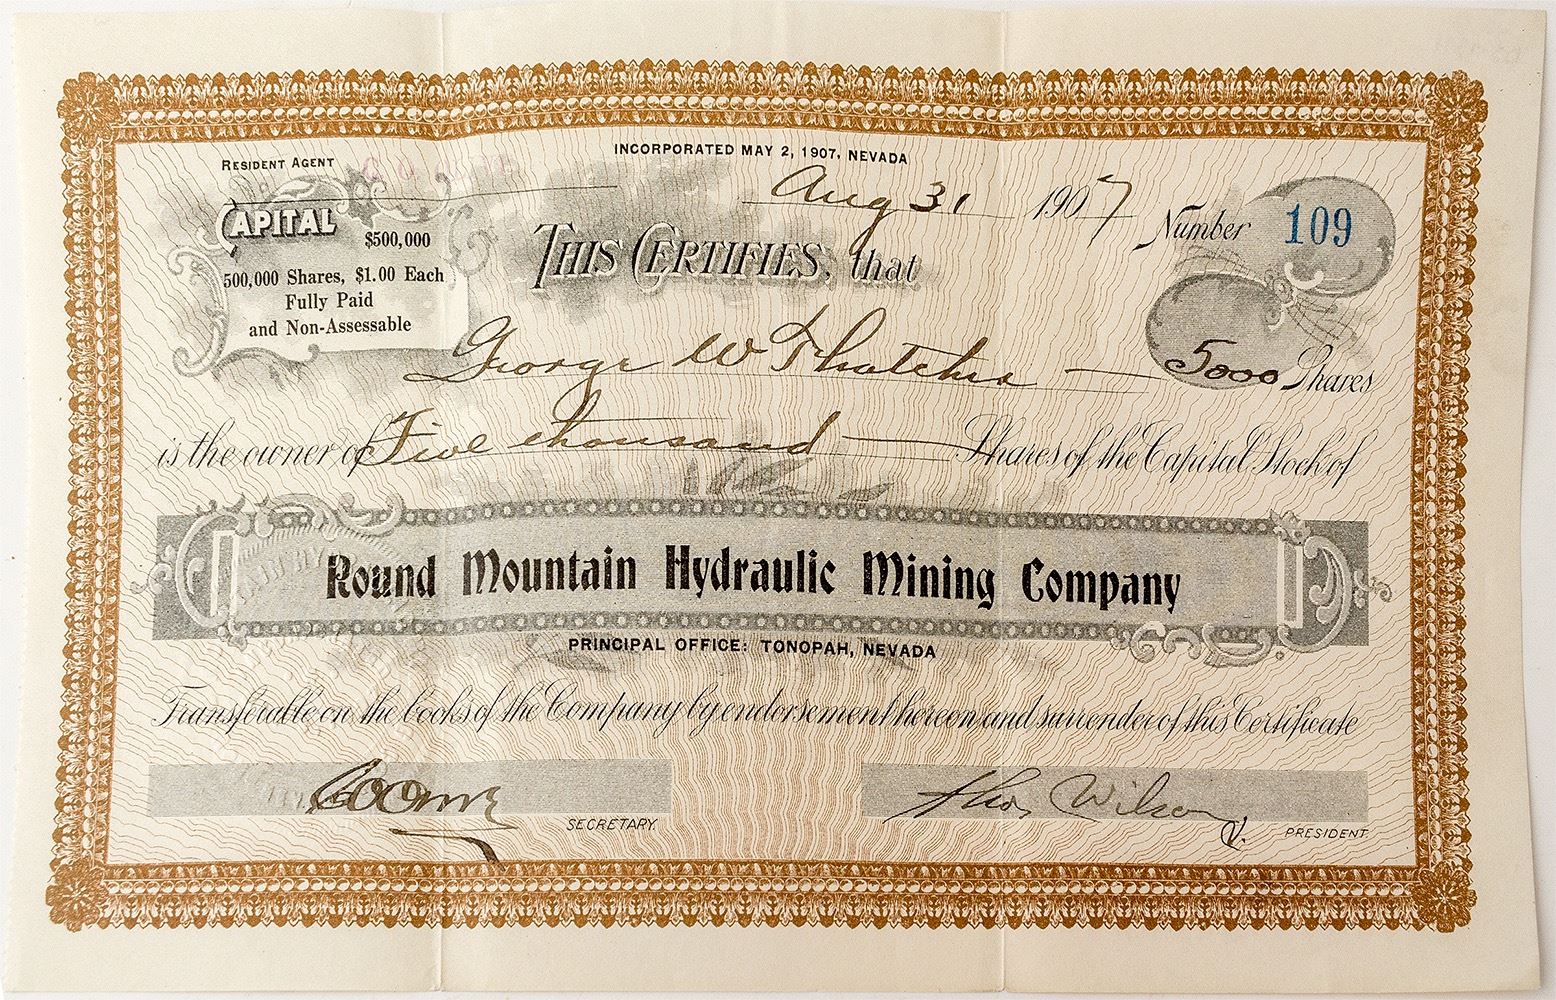 INCORPORATED MAY 2, 1907, NEVADA
RESIDENT AGENT
Aug 31 1907
Number 109
CAPITAL
$500,000
500,000 Shares, $1.00 Each
Fully Paid
and Non-Assessable
THIS CERTIFIES, that
George W Thatcher 5000 Shares
is the owner of Five thousand Shares of the Capital Stock of
Round Mountain Hydraulic Mining Company
PRINCIPAL OFFICE: TONOPAH, NEVADA
Transferable on the books of the Company by endorsement hereon and surrender of this Certificate
Thos Wilson
SECRETARY.
V. PRESIDENT